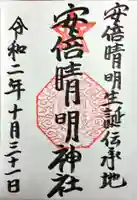 安倍晴明生誕伝承地
安倍晴明神社
令和二年十月三十一日